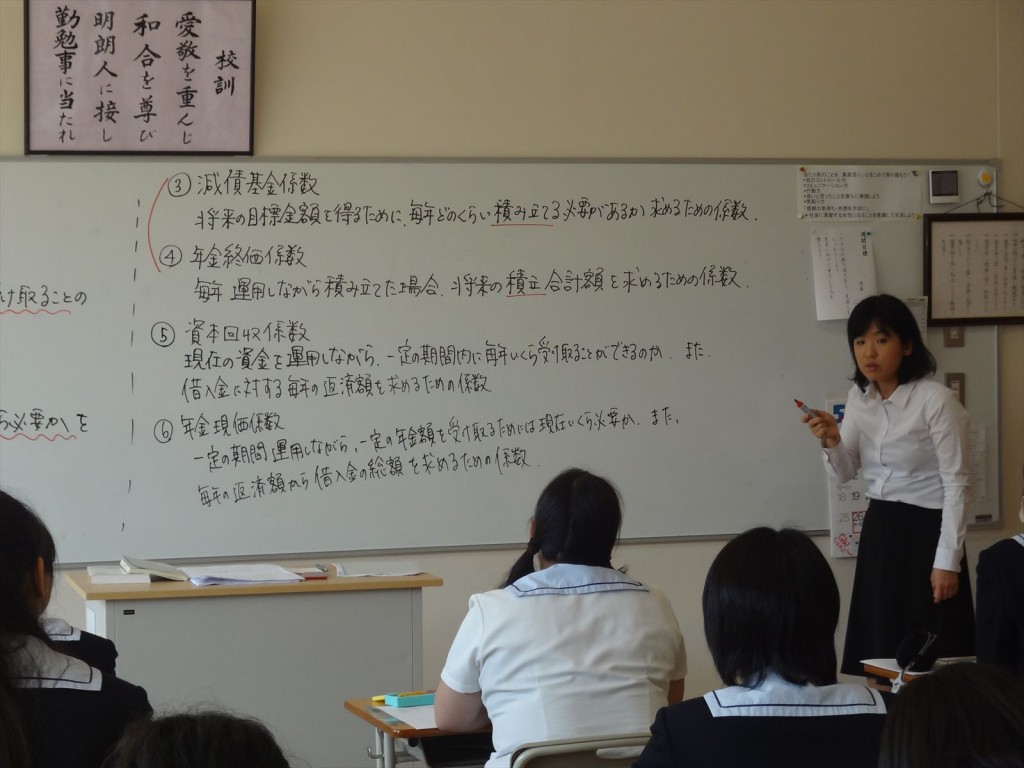 校訓
愛敬を重んじ
和合を尊び
明朗人に接し
勤勉事に当たれ
け取ることの
必要かを
③ 減債基金係数
将来の目標金額を得るために、毎年どのくらい積み立てる必要があるか求めるための係数.
④ 年金終価係数
毎年運用しながら積み立てた場合、将来の積立合計額を求めるための係数.
⑤ 資本回収係数
現在の資金を運用しながら、一定の期間内に毎年いくら受け取ることができるのか、また、
借入金に対する毎年の返済額を求めるための係数
⑥ 年金現価係数
一定の期間運用しながら、一定の年金額を受け取るためには現在いくら必要か、また、
毎年の返済額から借入金の総額を求めるための係数.
週間目標
18 19
25